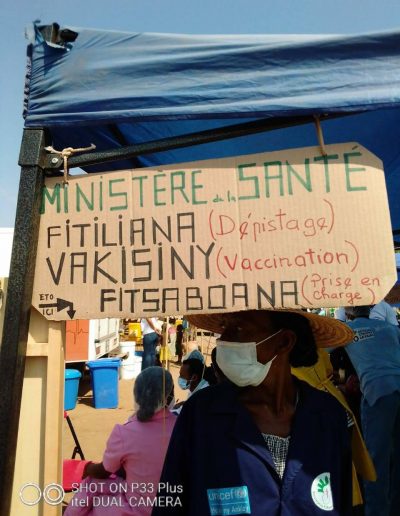 MINISTÈRE de la SANTÉ
FITILIANA (Dépistage)
VAKISINY (Vaccination)
FITSABOANA (Prise en charge)
ETO
ICI
unicef
SHOT ON P33 Plus
itel DUAL CAMERA